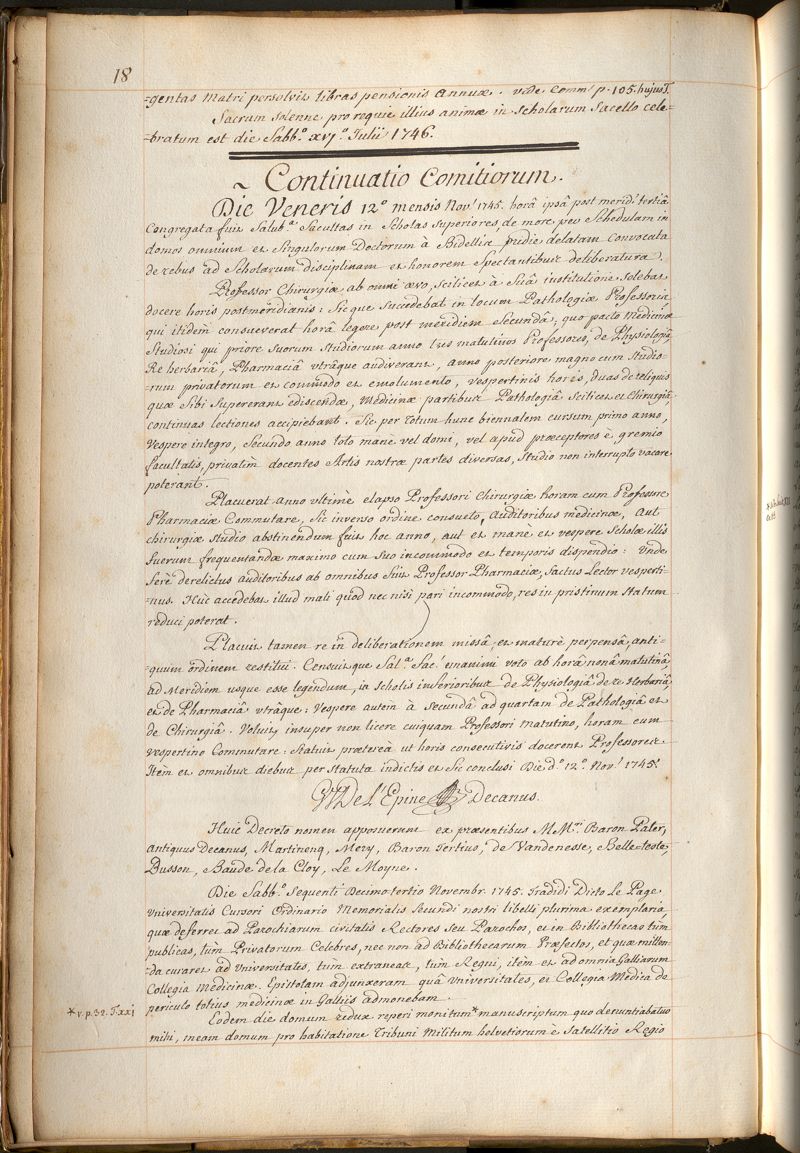 18
=gentas Matri persolvit libras pensionis Annuæ. vide Comm. p. 105. hujus T.
Sacrum solenne pro requie illius animæ in scholarum Sacello cele=
=bratum est die Sabb.º xvjº Julii 1746.
~ Continuatio Comitiorum.
Die Veneris 12º mensis Nov! 1745. horâ ipsâ post merid! tertiâ
Congregata fuit Salub.ª Facultas in Scholas Superiores, de more, per Schedulam in
domos omnium et Singulorum Doctorum à Bidellis pridie delatam Convocata
de rebus ad Scholarum disciplinam et honorem Spectantibus deliberatura.
Professor Chirurgiæ ab omni ævo, scilicet à Suâ institutione solebat
docere horis postmeridianis: Sicque succedebat in locum Pathologiæ Professoris,
qui itidem consueverat horâ legere post meridiem Secundâ; quo pacto Medicinæ
Studiosi qui priore Suorum Studiorum anno tres matutinos Professores, de Physiologiâ,
Re herbariâ, Pharmaciâ utrâque audiverant, anno posteriore magno cum Studio=
=rum privatorum et commodo et emolumento, vespertinis horis, duas de reliquis
quæ Sibi Supererant ediscendæ, Medicinæ partibus Pathologiâ Scilicet et Chirurgiâ,
continuas lectiones accipiebant. Sic per totum hunc biennalem cursum primo anno,
Vespere integro, Secundo anno toto manè vel domi, vel apud præceptores è gremio
facultatis, privatim docentes Artis nostræ partes diversas, Studio non interrupto vacare
poterant.
Placuerat anno ultimè elapso Professori Chirurgiæ horam cum Professore
Pharmaciæ Commutare, Sic inverso ordine consueto, Auditoribus medicinæ, Aut
chirurgiæ Studio abstinendum fuit hoc anno, aut et manè et vespere Scholæ illis
fuerunt frequentandæ maximo cum Suo incommodo et temporis dispendio: Unde
ferè derelictus auditoribus ab omnibus fuit Professor Pharmaciæ, factus Lector vesperti=
=nus. Huic accedebat illud mali quod nec nisi pari incommodo, res in pristinum Statum
reduci poterat.
Placuit tamen re in deliberationem missâ, et maturè perpensâ, anti=
=quum ordinem restitui. Censuitque Sal.ª Fac. unanimi voto ab horâ nonâ matutinâ,
ad Meridiem usque esse legendum, in Scholis inferioribus de Physiologiâ de re Herbariâ,
et de Pharmaciâ utrâque: Vespere autem à Secundâ ad quartam de Pathologiâ et
de Chirurgiâ. Voluit insuper non licere cuiquam Professori Matutino, horam cum
Vespertino Commutare: Statuit prætereà ut horis consecutivis docerent Professores
Item et omnibus diebus per Statuta indictis et Sic conclusi Die d.ª 12º Nov! 1745.
G. De L'Epine Decanus.
Huic Decreto nomen apposuerunt ex præsentibus M Mri. Baron Pater,
Antiquus Decanus, Martinenq, Mery, Baron Tertius, de Vandenesse, Belleteste,
Busson, Baude de la Cloy, Le Moyne.
Die Sabb.º Sequenti Decimo tertio Novembr. 1745. Tradidi Dicto Le Page
Universitatis Cursori Ordinario Memorialis Secundi nostri libelli plurima exemplaria,
quæ deferret ad Parochiarum civitatis Rectores Seu Parochos, et in Bibliothecas tum
publicas, tum Privatorum Celebres, nec non ad Bibliothecarum Præfectos, et quæ mitten=
da curaret ad Universitates, tum extraneas, tum Regni, item et ad omnia Galliarum
Collegia Medicinæ. Epistolam adjunxeram quâ Universitates, et Collegia Medica de
periculo totius medicinæ in Galliis admonebam.
*v. p. 32. T. xxj
Eodem die domum redux reperi monitum* manuscriptum quo denuntiabatur
mihi, meam domum pro habitatione Tribuni Militum helvetiorum è Satellitio Regio